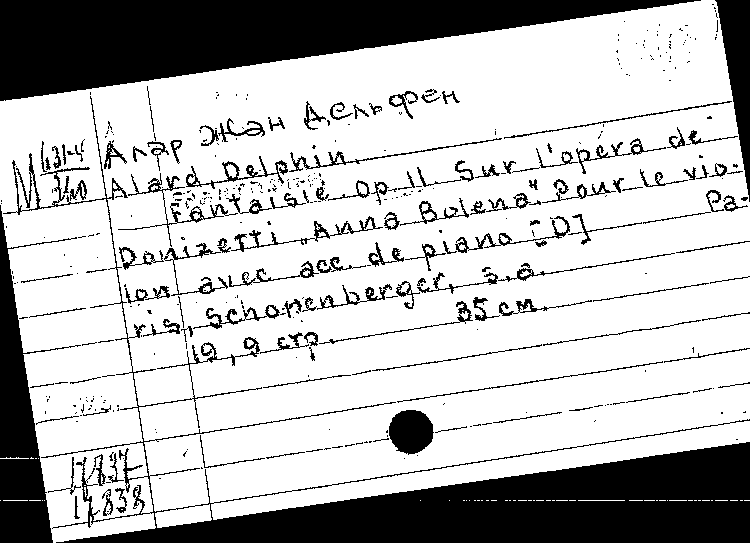 Алар Жан Дельфен
М 631-4
340
Alard, Delphin.
Fantaisie. Op. 11 Sur l'opera de
Donizetti „Anna Bolena". Pour le vio-
lon avec acc. de piano [D] Pa-
ris, Schonenberger, s.a.
19, 9 стр. 35 см.
17837
17838